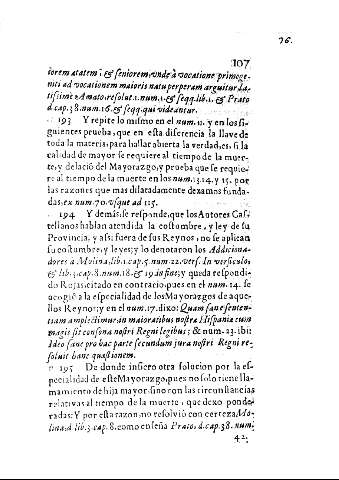 76.
107
iorem ætatem, & seniorem, unde à vocatione primoge-
niti ad vocationem maioris natu perperam arguitur la-
tissimè Amato, resolut. 1. num. 1. & seqq. lib. 1. & Prato
d. cap. 38. num. 16. & seqq. qui videantur.
193 Y repite lo mismo en el num. 11. y en los si-
guientes prueba, que en esta diferencia la llave de
toda la materia, para hallar abierta la verdad, es, si la
calidad de mayor se requiere al tiempo de la muer-
te, y delació del Mayorazgo, y prueba que se requie-
re al tiempo de la muerte en los num. 13. 14. y 15. por
las razones que mas dilatadamente dexamos funda-
das, ex num. 70. usque ad 115.
194 Y demás, se responde, que los Autores Cas-
tellanos hablan atendida la costumbre, y ley de su
Provincia, y assi fuera de sus Reynos, no se aplican
su costumbre, y leyes; y lo denotaron los Addiciona-
dores à Molina, lib. 1. cap. 5. num. 22. vers. In versiculos
& lib. 3. cap. 8. num. 18. & 19. in fine; y queda respondi-
do Rojas, citado en contrario, pues en el num. 14. se
acogió a la especialidad de los Mayorazgos de aque-
llos Reynos; y en el num. 17. dixo: Quam sane senten-
tiam amplectimur in maioratibus nostræ Hispaniæ cum
magis sit consona nostri Regni legibus; & num. 23. ibi:
Ideo sane pro hac parte secundum jura nostri Regni re-
soluit hanc quæstionem.
195 De donde infiero otra solucion por la es-
pecialidad de este Mayorazgo, pues no solo tiene lla-
mamiento de hija mayor, sino con las circunstancias
relativas al tiempo de la muerte, que dexo ponde-
radas: Y por esta razon, no resolvió con certeza Mo-
lina, d. lib. 3. cap. 8. como enseña Prato, d. cap. 38. num.
42.